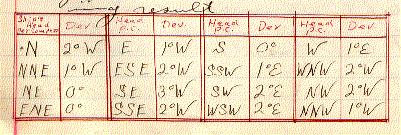 ing result
Ship's Head Per Compass Dev Head P.C. Dev. Head P.C. Dev Head P.C. Dev
N 2°W E 1°W S 0° W 1°E
NNE 1°W ESE 2°W SSW 1°E WNW 2°W
NE 0° SE 3°W SW 2°E NW 2°W
ENE 0° SSE 2°W WSW 2°E NNW 1°W